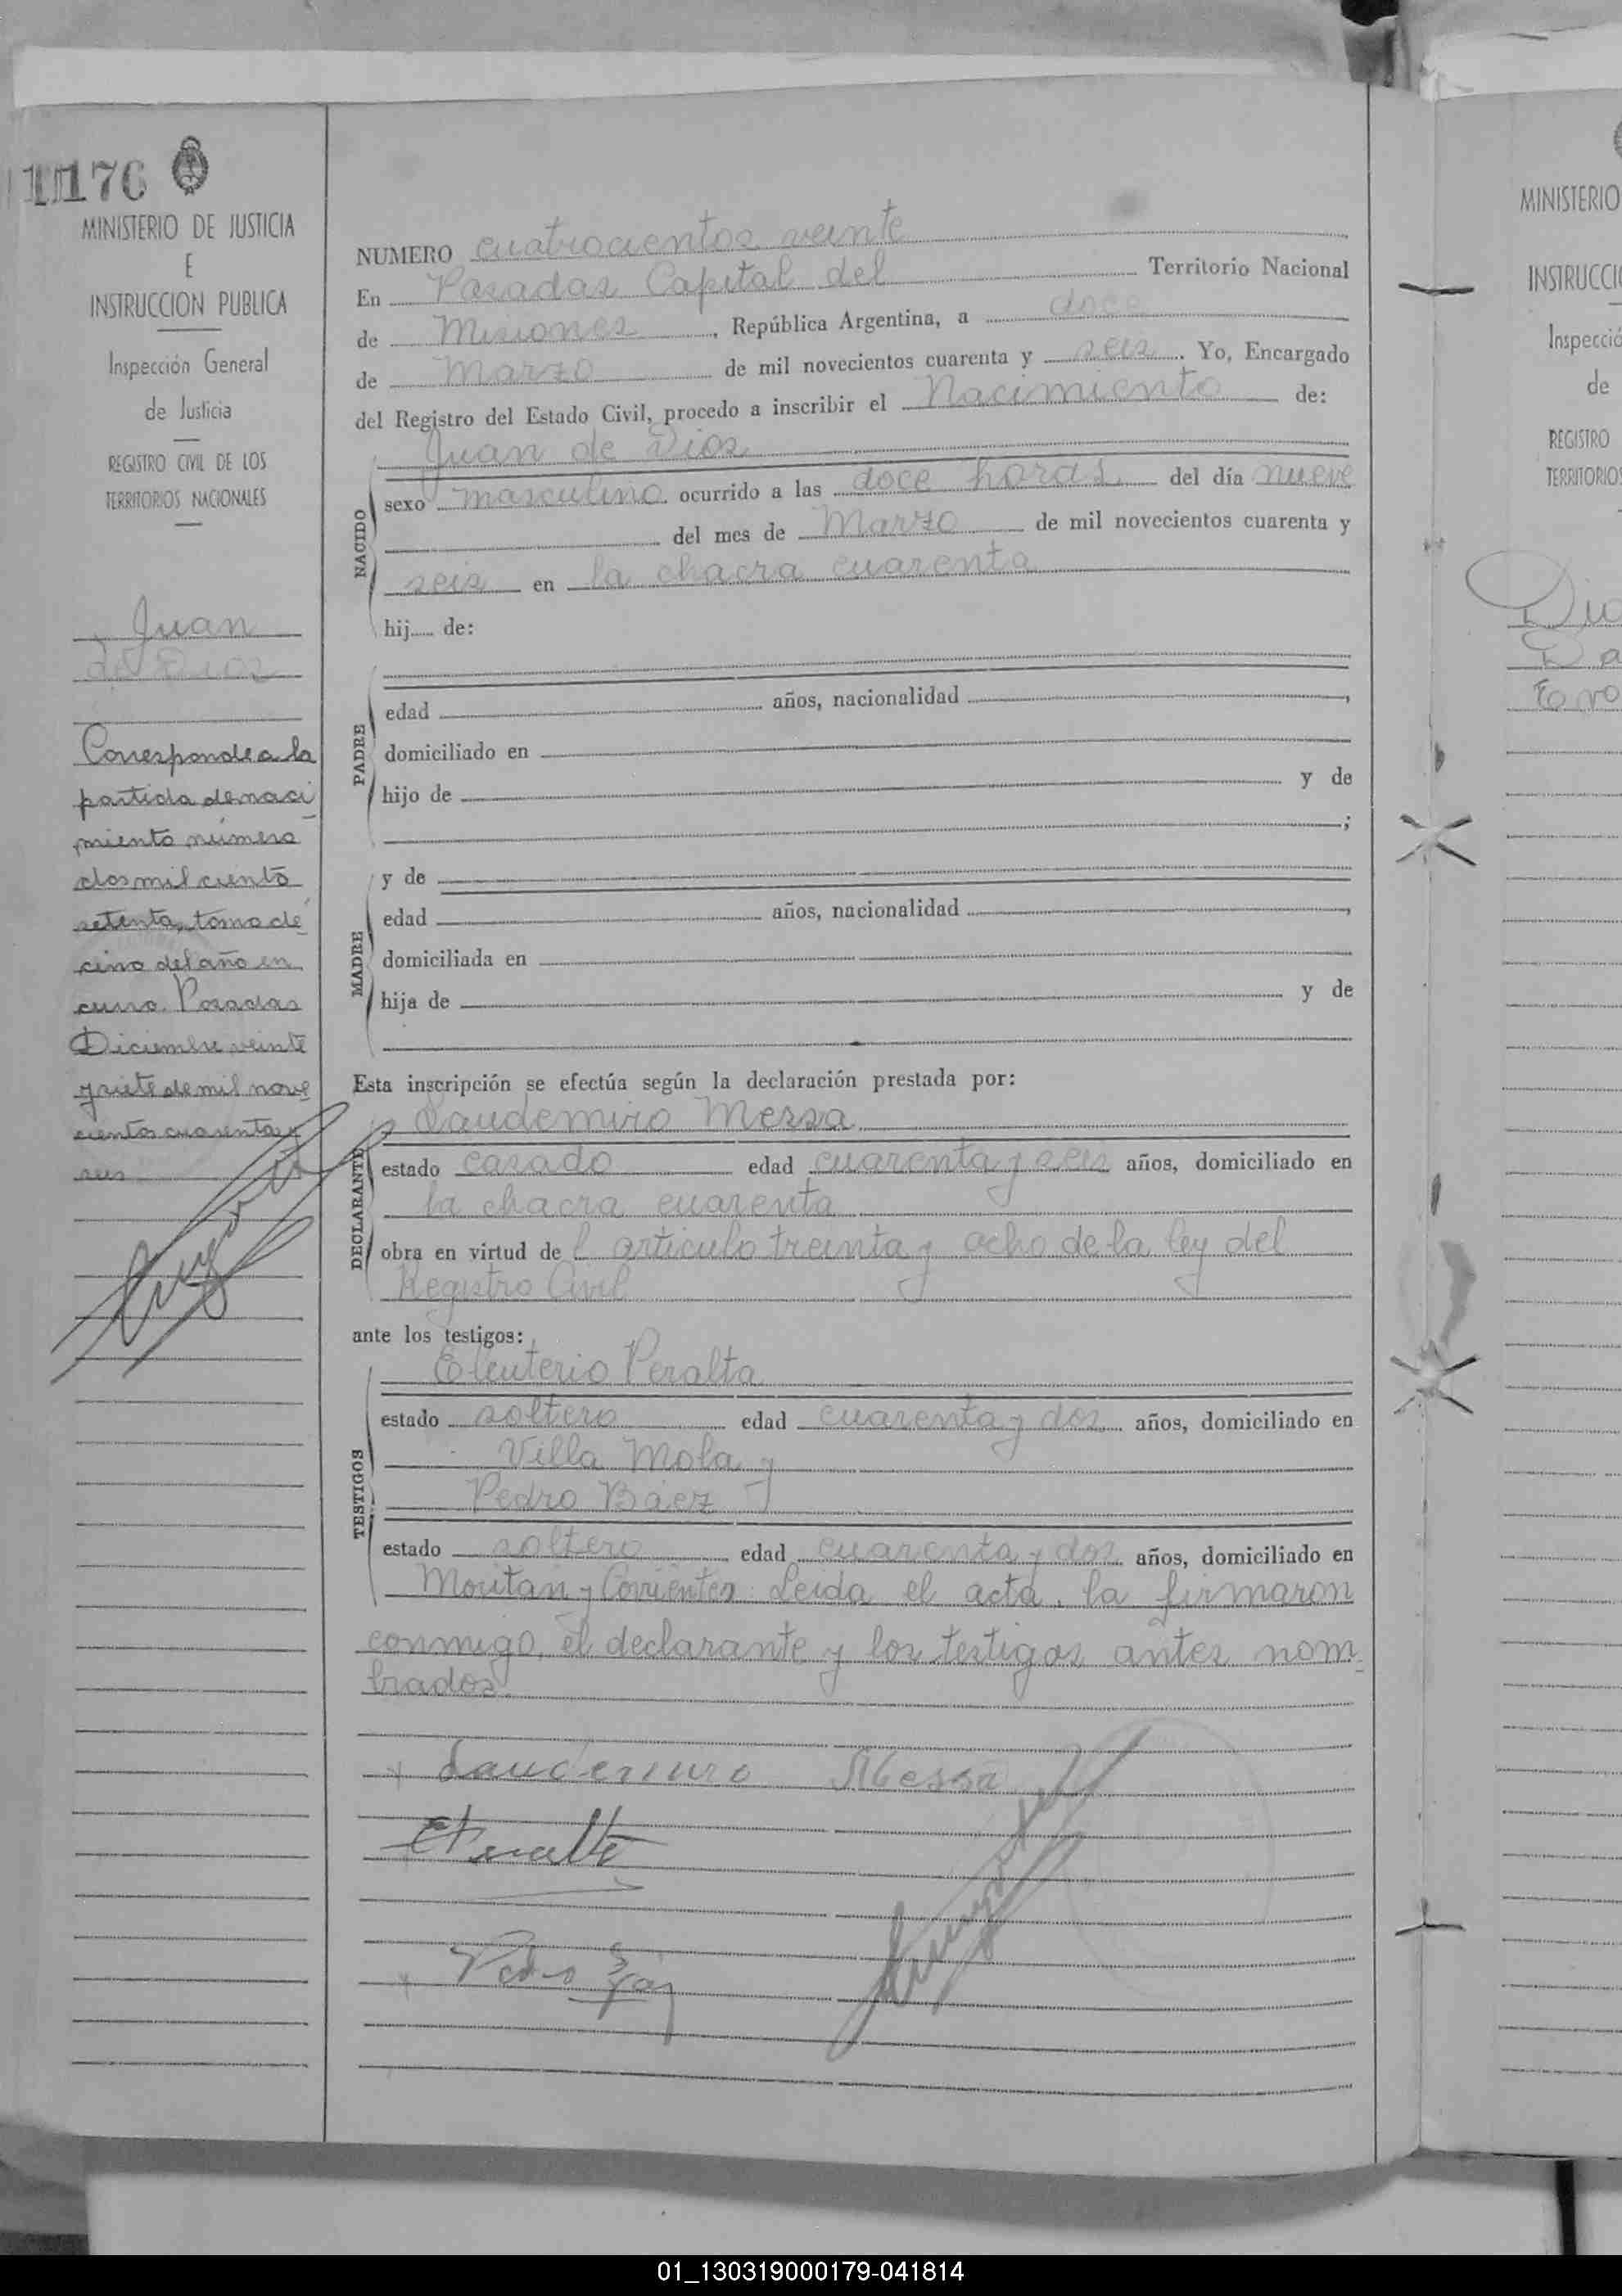 11176
MINISTERIO DE JUSTICIA
E
INSTRUCCION PUBLICA
Inspección General
de Justicia
REGISTRO CIVIL DE LOS
TERRITORIOS NACIONALES
Juan
de Dios
Corresponde a la
partida de naci
miento número
dos mil ciento
setenta, tomo dé
cimo del año en
curso. Posadas
Diciembre veinte
y siete de mil nove
cientos cuarenta y
seis
NUMERO cuatrocientos veinte
En Posadas Capital del Territorio Nacional
de Misiones, República Argentina, a doce
de Marzo de mil novecientos cuarenta y seis. Yo, Encargado
del Registro del Estado Civil, procedo a inscribir el Nacimiento de:
Juan de Dios
NACIDO
sexo masculino ocurrido a las doce horas del día nueve
del mes de Marzo de mil novecientos cuarenta y
seis en la chacra cuarenta
hij..... de:
PADRE
edad años, nacionalidad ,
domiciliado en
hijo de y de
;
y de
MADRE
edad años, nacionalidad ,
domiciliada en
hija de y de
Esta inscripción se efectúa según la declaración prestada por:
Laudemiro Messa
DECLARANTE
estado casado edad cuarenta y seis años, domiciliado en
la chacra cuarenta
obra en virtud de l articulo treinta y ocho de la ley del
Registro Civil
ante los testigos:
Eleuterio Peralta
TESTIGOS
estado soltero edad cuarenta y dos años, domiciliado en
Villa Mola y
Pedro Báez
estado soltero edad cuarenta y dos años, domiciliado en
Moritan y Corrientes. Leida el acta, la firmaron
conmigo, el declarante y los testigos antes nom
brados.
Laudemiro Messa
EPeralta
Pedro
MINISTERIO
INSTRUCCI
Inspecció
de
REGISTRO
TERRITORIOS
01_130319000179-041814